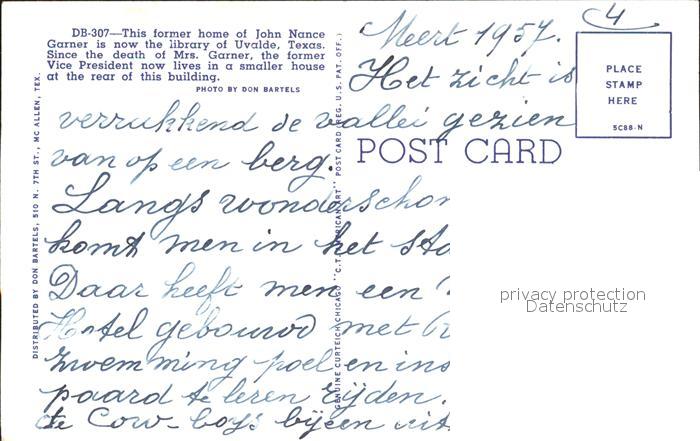 DB-307—This former home of John Nance
Garner is now the library of Uvalde, Texas.
Since the death of Mrs. Garner, the former
Vice President now lives in a smaller house
at the rear of this building.
PHOTO BY DON BARTELS
DISTRIBUTED BY DON BARTELS, 510 N. 7TH ST., MC ALLEN, TEX.
GENUINE CURTEICH-CHICAGO "C.T. AMERICAN ART" POST CARD (REG. U.S. PAT. OFF.)
4
PLACE
STAMP
HERE
5C88-N
POST CARD
Meert 1957.
Het zicht is
verrukkend de vallei gezien
van op een berg.
Langs wonderschon
komt men in het sta
Daar heeft men een
Hotel gebouwd met
zwemming poel en ins
paard te leren rijden.
de Cow-boys bijeen uit
privacy protection
Datenschutz